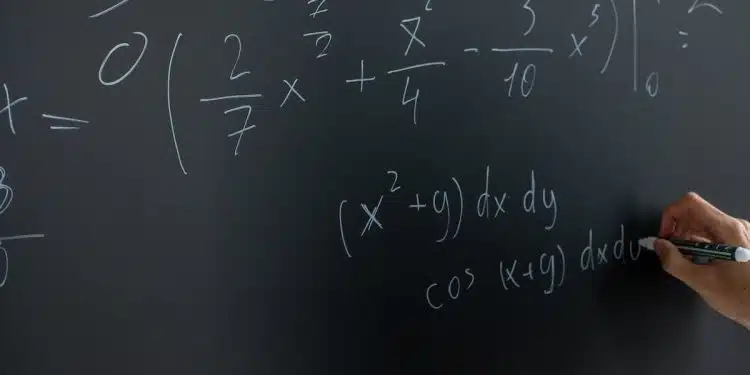 0 ( 2/7 x^(7/2) + x^2/4 - 3/10 x^5 ) | 0
x =
(x² + y) dx dy
cos (x+y) dx dy